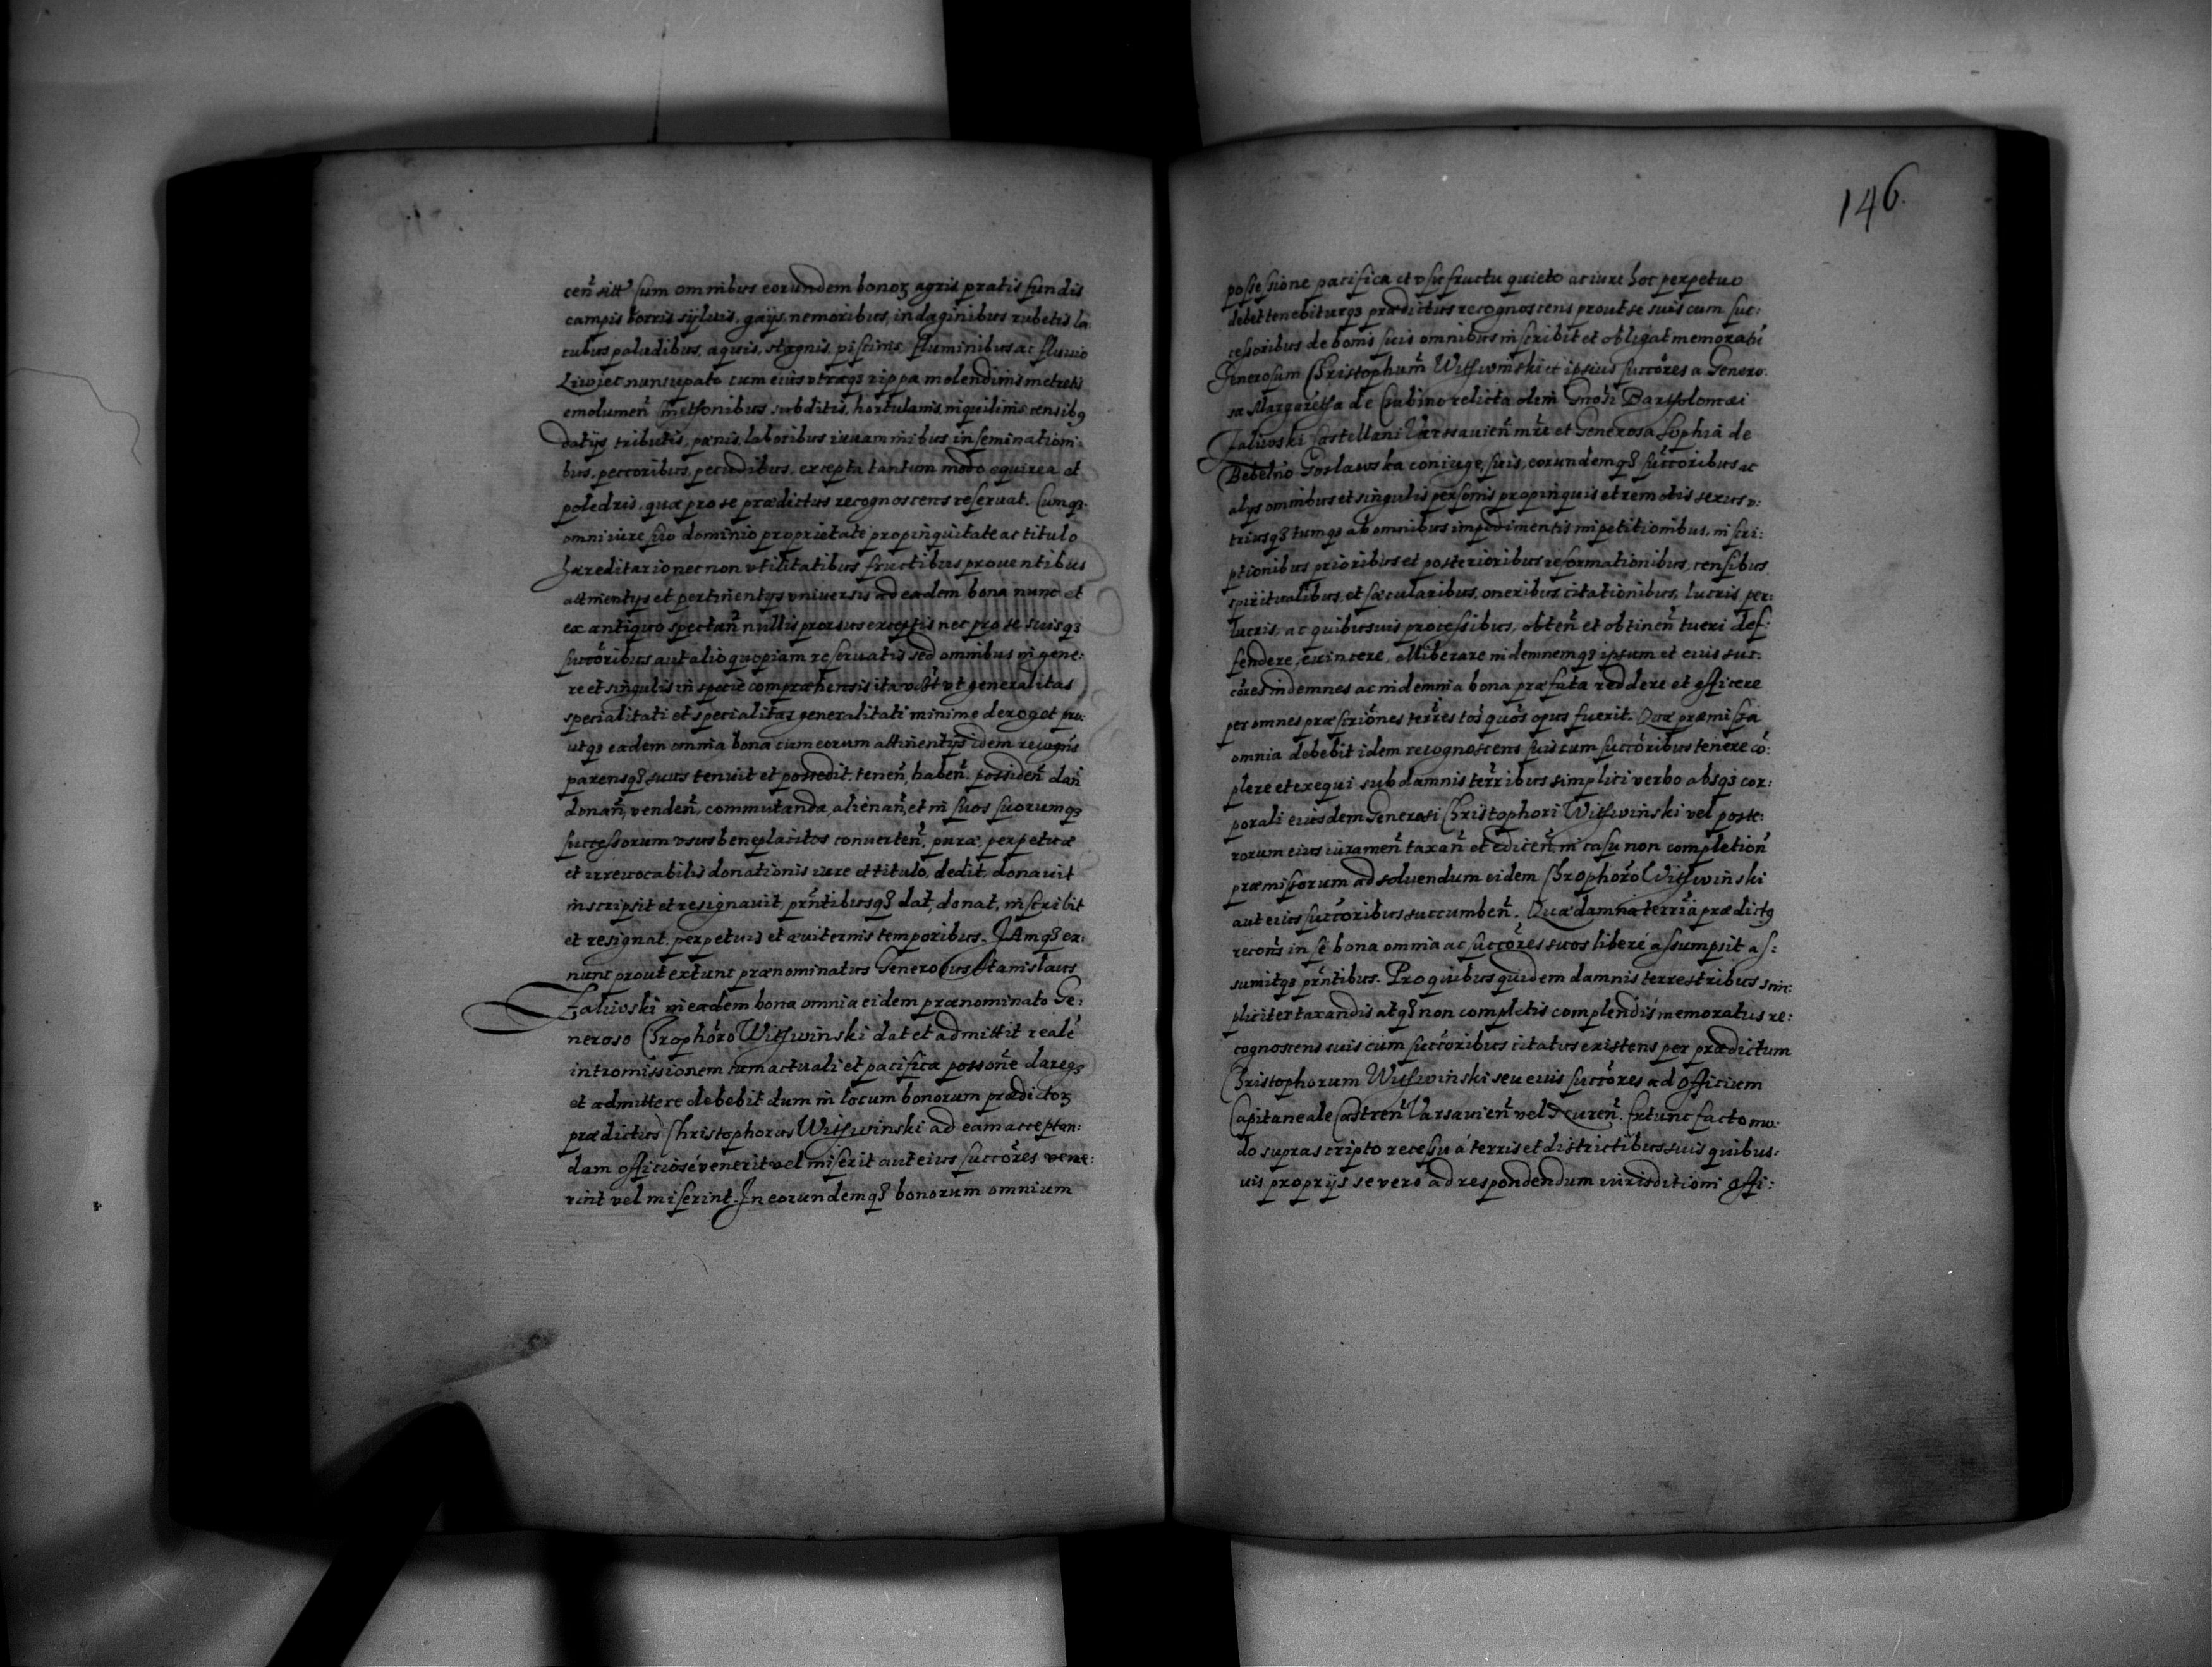 ceñ sitt̃ sum omnibus eorundem bonoꝝ agris pratis fundis
campis borris syluis, gaijs, nemoribus, indaginibus rubetis la:
cubus paludibus, aquis, stagnis, piscinis fluminibus ac fluuio
Liwiec nuncupato cum eius vtraqꝫ rippa molendinis metretis
emolumeñ subditis, hortulanis, inquilinis censibꝰ
datijs tributis, pœnis, laboribus iuuaminibus, inseminationi:
bus, peccoribus, pecudibus, excepta tantum modo equirea et
poledris, quæ pro se prædictus recognoscens reseruat. Cumqꝫ
omni iure suo dominio proprietate propinquitate ac titulo
hæreditario nec non vtilitatibus fructibus prouentibus
attinentijs et pertinentijs vniuersis ad eadem bona nunc et
ex antiquo spectañ nullis prorsus exceptis nec pro se suisqꝫ
succõribus aut alio quopiam reseruatis sed omnibus in gene:
re et singulis in specie compræhensis ita vt generalitas
specialitati et specialitas generalitati minime deroget pro:
utqꝫ eadem omnia bona cum eorum attinentijs idem recogñs
parensqꝫ suus tenuit et possedit, teneñ, habeñ, possideñ dañ
donañ, vendeñ, commutanda, alienañ, et in suos suorumqꝫ
successorum vsus beneplacitos conuerteñ, puræ, perpetuæ
et irreuocabilis donationis iure et titulo, dedit, donauit
inscripsit et resignauit, prñtibusqꝫ dat, donat, inscribit
et resignat, perpetuis et æuiternis temporibus. IAmqꝫ ex:
nunc prout extunc prænominatus Generosus Stanislaus
Zaliwski in eadem bona omnia eidem prænominato Ge:
neroso Chrophõro Witwinski dat et admittit realẽ
intromissionem cum actuali et pacifica possoñe dareqꝫ
et admittere debebit dum in locum bonorum prædictoꝝ
prædictus Christophorus Witwinski ad eam acceptan:
dam officiosé venerit vel miserit aut eius succõres vene:
rint vel miserint. In eorundemqꝫ bonorum omnium
146.
possessione pacifica et vsufructu quieto ac iure hoc perpetuo
debet tenebiturqꝫ prædictus recognoscens prout se suis cum suc:
cessoribus de bonis suis omnibus inscribit et obligat memoratũ
Generosum Christophum̃ Witwinski et ipsius succõres a Genero:
sa Margaretha de relicta olim Bartholomæi
Zaliwski Castellani Varssauieñ mr̃e et Generosa Sophia de
Goslawska coniuge, suis, eorundemqꝫ succõribus ac
alijs omnibus et singulis personis propinquis et remotis sexus v:
triusqꝫ tumqꝫ ab omnibus impedimentis impetitionibus, inscri:
ptionibus prioribus et posterioribus reformationibus, censibus
spiritualibus, et sæcularibus, oneribus citationibus, lucris, per:
lucris, ac quibusuis processibus, obteñ et obtineñ tueri def:
fendere, euincere, elliberare indemnemqꝫ ipsum et eius suc:
cõres indemnes ac indemnia bona præfata reddere et efficere
per omnes præscriões terr̃es toś quoś opus fuerit. Quæ præmissa
omnia debebit idem recognoscens suis cum succõribus tenere cõ:
plere et exequi sub damnis terr̃ibus simplici verbo absqꝫ cor:
porali eiusdem Generosi Christophori Witwinski vel poste:
rorum eius iurameñ taxañ et ediceñ, in casu non completioñ
præmissorum ad soluendum eidem Chrophõro Witwinski
aut eius succõribus succumbeñ. Quæ damna terr̃ia prædictꝰ
recoñs in se bona omnia ac succõres suos liberé assumpsit as:
sumitqꝫ prñtibus. Pro quibus quidem damnis terrestribus sim:
pliciter taxandis atqꝫ non completis complendis memoratus re:
cognoscens suis cum succõribus citatus existens per prædictum
Christophorum Witwinski seu euis succõres ad Officium
Capitaneale Castreñ Varsauieñ vel. Extunc facto mo:
do suprascripto recessu á terris et districtibus suis quibus:
uis proprijs se vero ad respondendum iurisditioni offi: